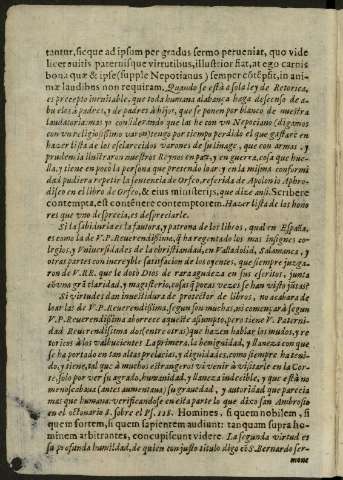 tantur, sicque ad ipsum per gradus sermo perueniat, quo vide
licet auitis paternisque virtutibus, illustrior fiat, at ego carnis
bona quæ & ipse (supple Nepotianus) semper cõtẽpsit, in ani-
mæ laudibus non requiram. Quando se està a sola ley de Retorica,
es precepto ineuitable, que toda humana alabança haga descenso de a-
buelos à padres, y de padres à hijos, que se ponen por blanco de nuestra
laudatoria: mas yo considerando que las he con vn Nepotiano (digamos
con vn religiosissimo varon) tengo por tiempo perdido el que gastarè en
hazer lista de los esclarecidos varones de su linage, que con armas, y
prudencia ilustraron nuestros Reynos en paz, y en guerra, cosa que hue-
lla, y tiene en poco la persona que pretendo loar: y en la misma conformi
dad pudiera repetir la sentencia de Orfeo, referida de Apolonis Aphro-
diseo en el libro de Orfeo, & eius ministerijs, que dize ansi. Scribere
contempta, est contẽnere contemptorem. Hazer lista de los hono
res que vno desprecia, es despreciarle.
Si la sabiduria es la fautora, y patrona de los libros, qual en España,
es como la de V.P. Reuerendissima, q̃ ha regentado los mas insignes co-
legios, y Vniuersidades de la christiandad, en Valladolid, Salamanca, y
otras partes con increyble satisfacion de los oyentes, que siempre juzga-
ron de V.RR. que le dotò Dios de rara agudeza en sus escritos, junta
cõ vna grã claridad, y magisterio, cosas q̃ pocas vezes se han visto jũtas?
Si virtudes dan inuestidura de protector de libros, no acabara de
loar las de V.P. Reuerendissima, segun son muchas, ni començarà segun
V.P. Reuerendissima aborrece aqueste assumpto, pero tiene V. Paterni-
dad Reuerendissima dos (entre otras) que hazen hablar los mudos, y re
toricos à los valbucientes La primera, la benignidad, y llaneza con que
se ha portado en tan altas prelacias, y dignidades, como siempre ha teni-
do, y tiene, tal que à muchos estrangeros vi venir à visitarle en la Cor-
te, solo por ver su agrado, humanidad, y llaneza indecible, y que està no
menoscabaua (antes aumentaua) su grauedad, y autoridad que parecia
mas que humana: verificandose en esta parte lo que dixo san Ambrosio
en el octonario 8. sobre el Ps. 118. Homines, si quem nobilem, si
quem fortem, si quem sapientem audiunt: tanquam supra ho-
minem arbitrantes, concupiscunt videre. La segunda virtud es
su profunda humildad, de quien con justo titulo digo cõ S. Bernardo ser-
mone